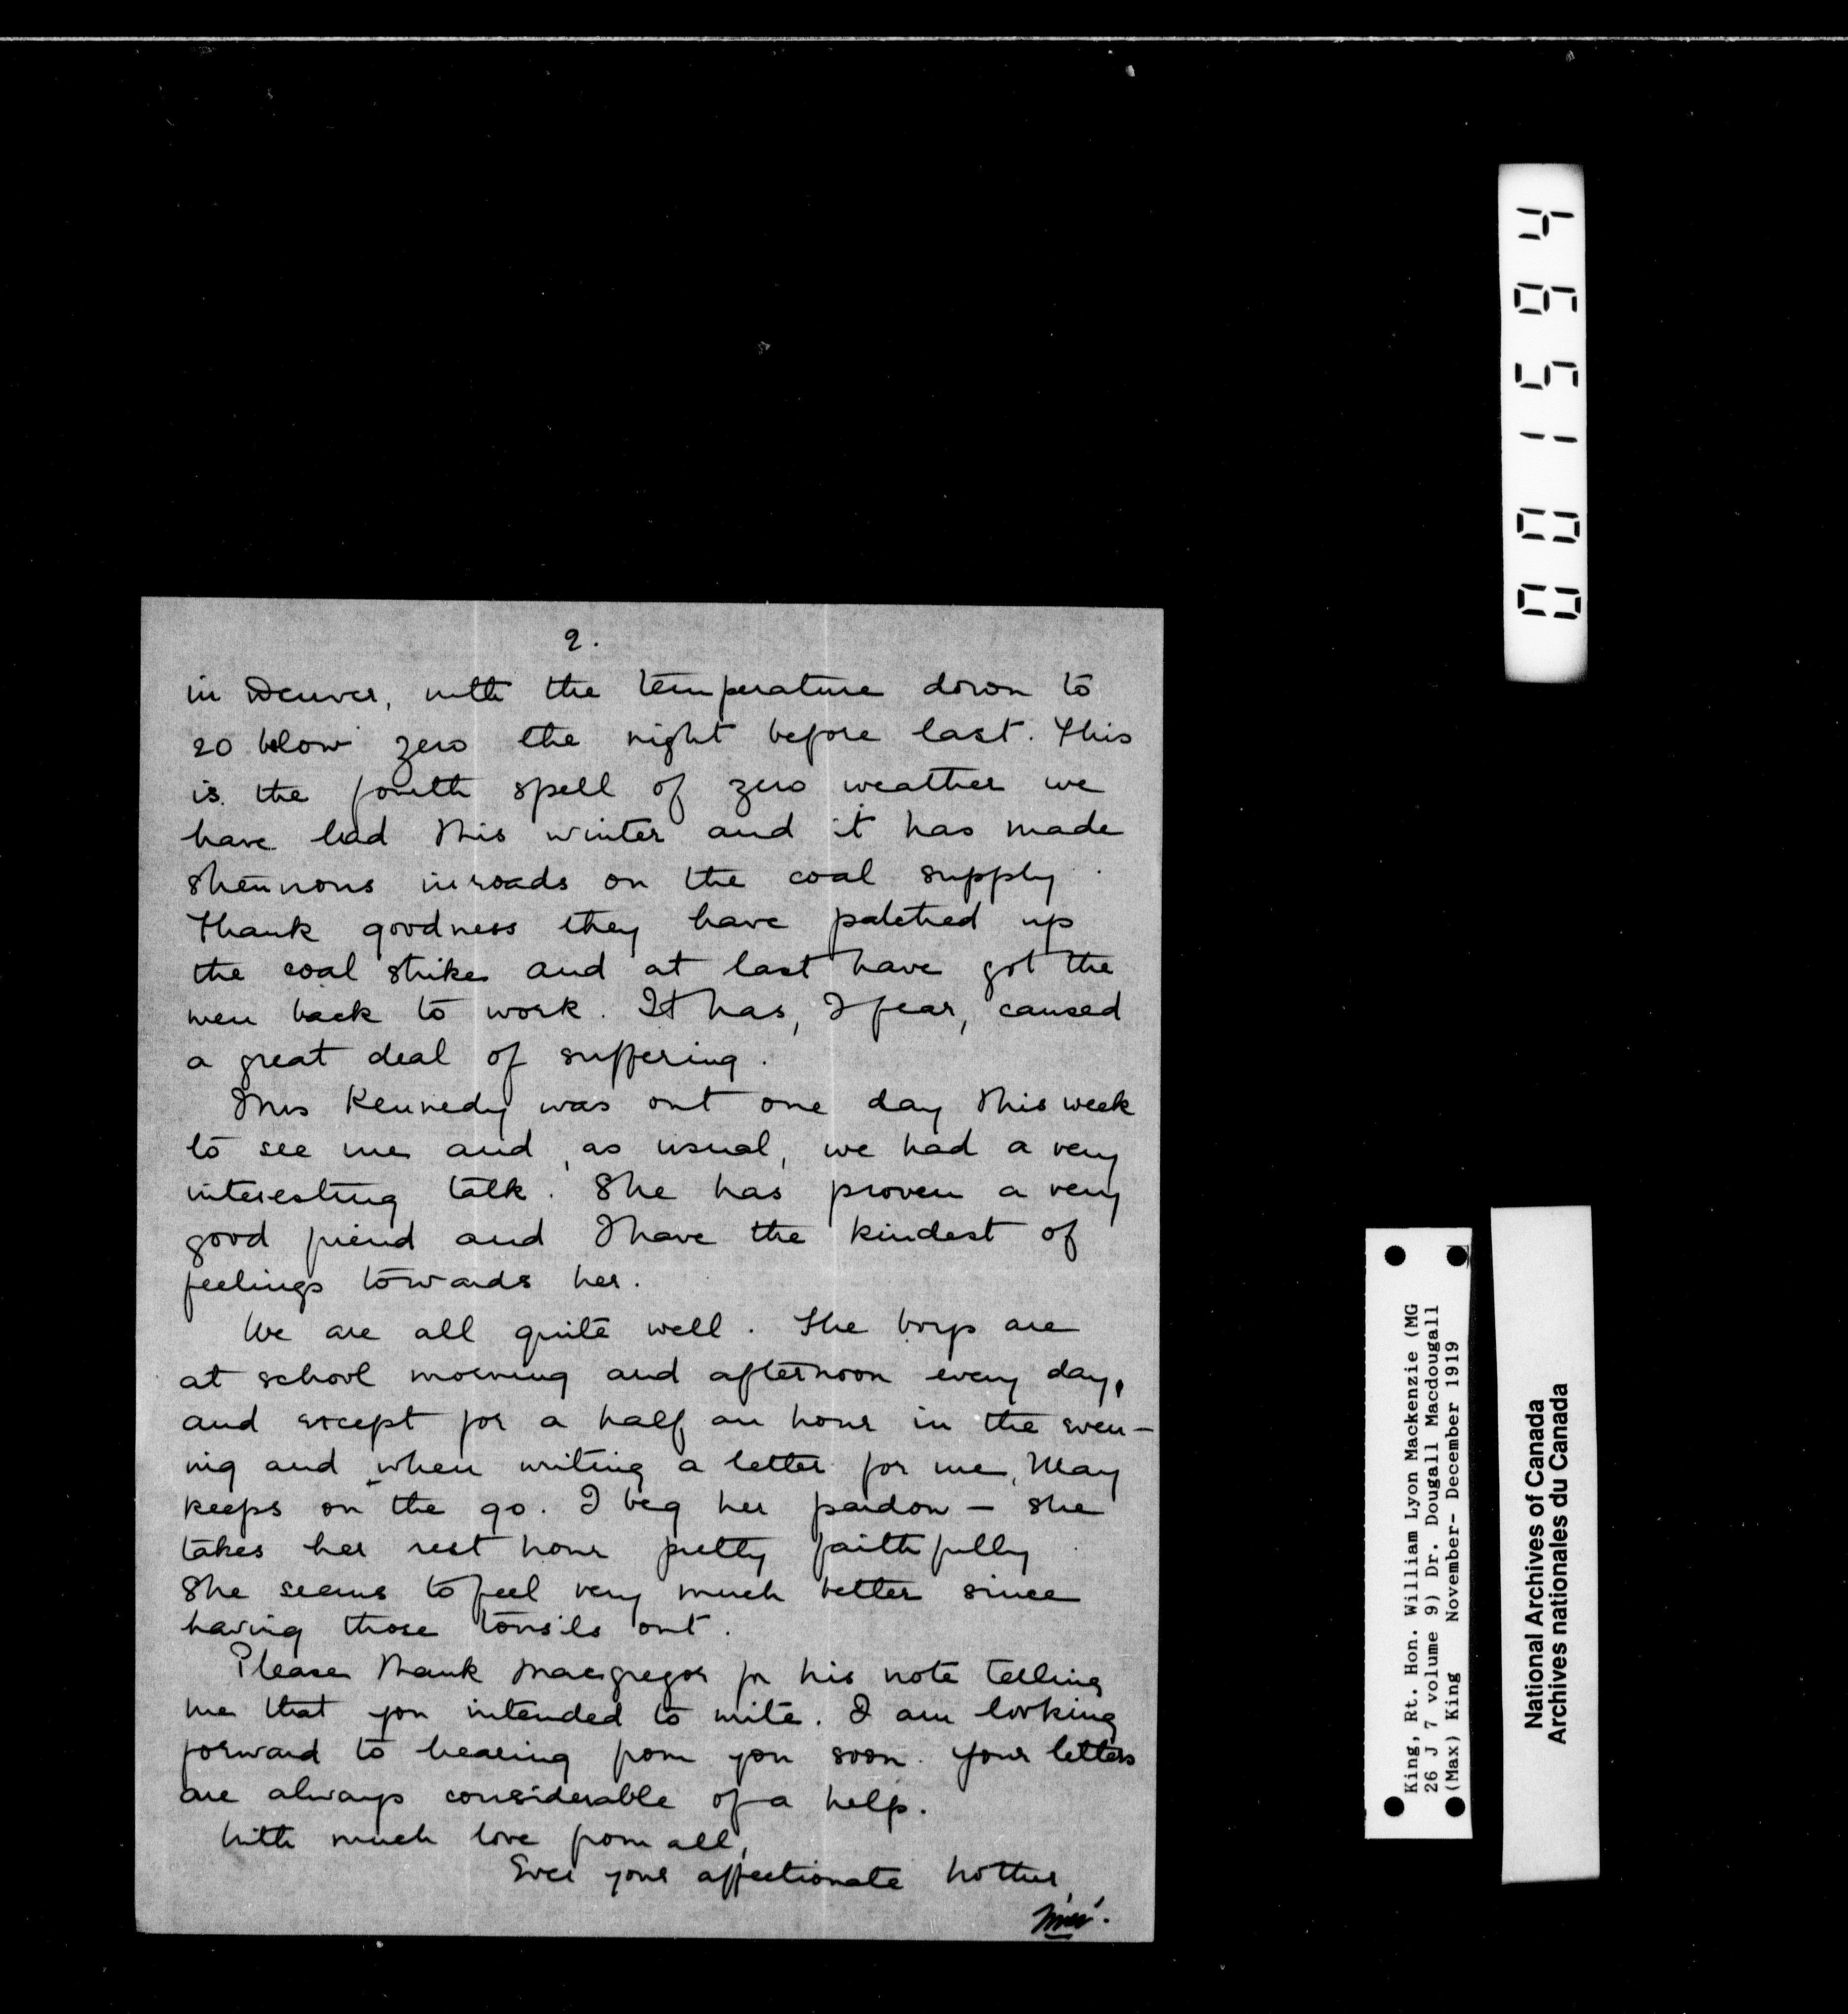 2.
in Denver, with the temperature down to
20 below zero the night before last. This
is the fourth spell of zero weather we
have had this winter and it has made
strenuous inroads on the coal supply.
Thank goodness they have patched up
the coal strike and at last have got the
men back to work. It has, I fear, caused
a great deal of suffering.
Mrs Kennedy was out one day this week
to see me and, as usual, we had a very
interesting talk. She has proven a very
good friend and I have the kindest of
feelings towards her.
We are all quite well. The boys are
at school morning and afternoon every day,
and except for a half an hour in the even-
ing and when writing a letter for me, May
keeps on the go. I beg her pardon — she
takes her rest hour pretty faithfully.
She seems to feel very much better since
having those tonsils out.
Please thank Macgregor for his note telling
me that you intended to write. I am looking
forward to hearing from you soon. Your letters
are always considerable of a help.
With much love from all,
Ever your affectionate brother,
0015194
King, Rt. Hon. William Lyon Mackenzie (MG
26 J 7 volume 9) Dr. Dougall Macdougall
(Max) King November- December 1919
National Archives of Canada
Archives nationales du Canada